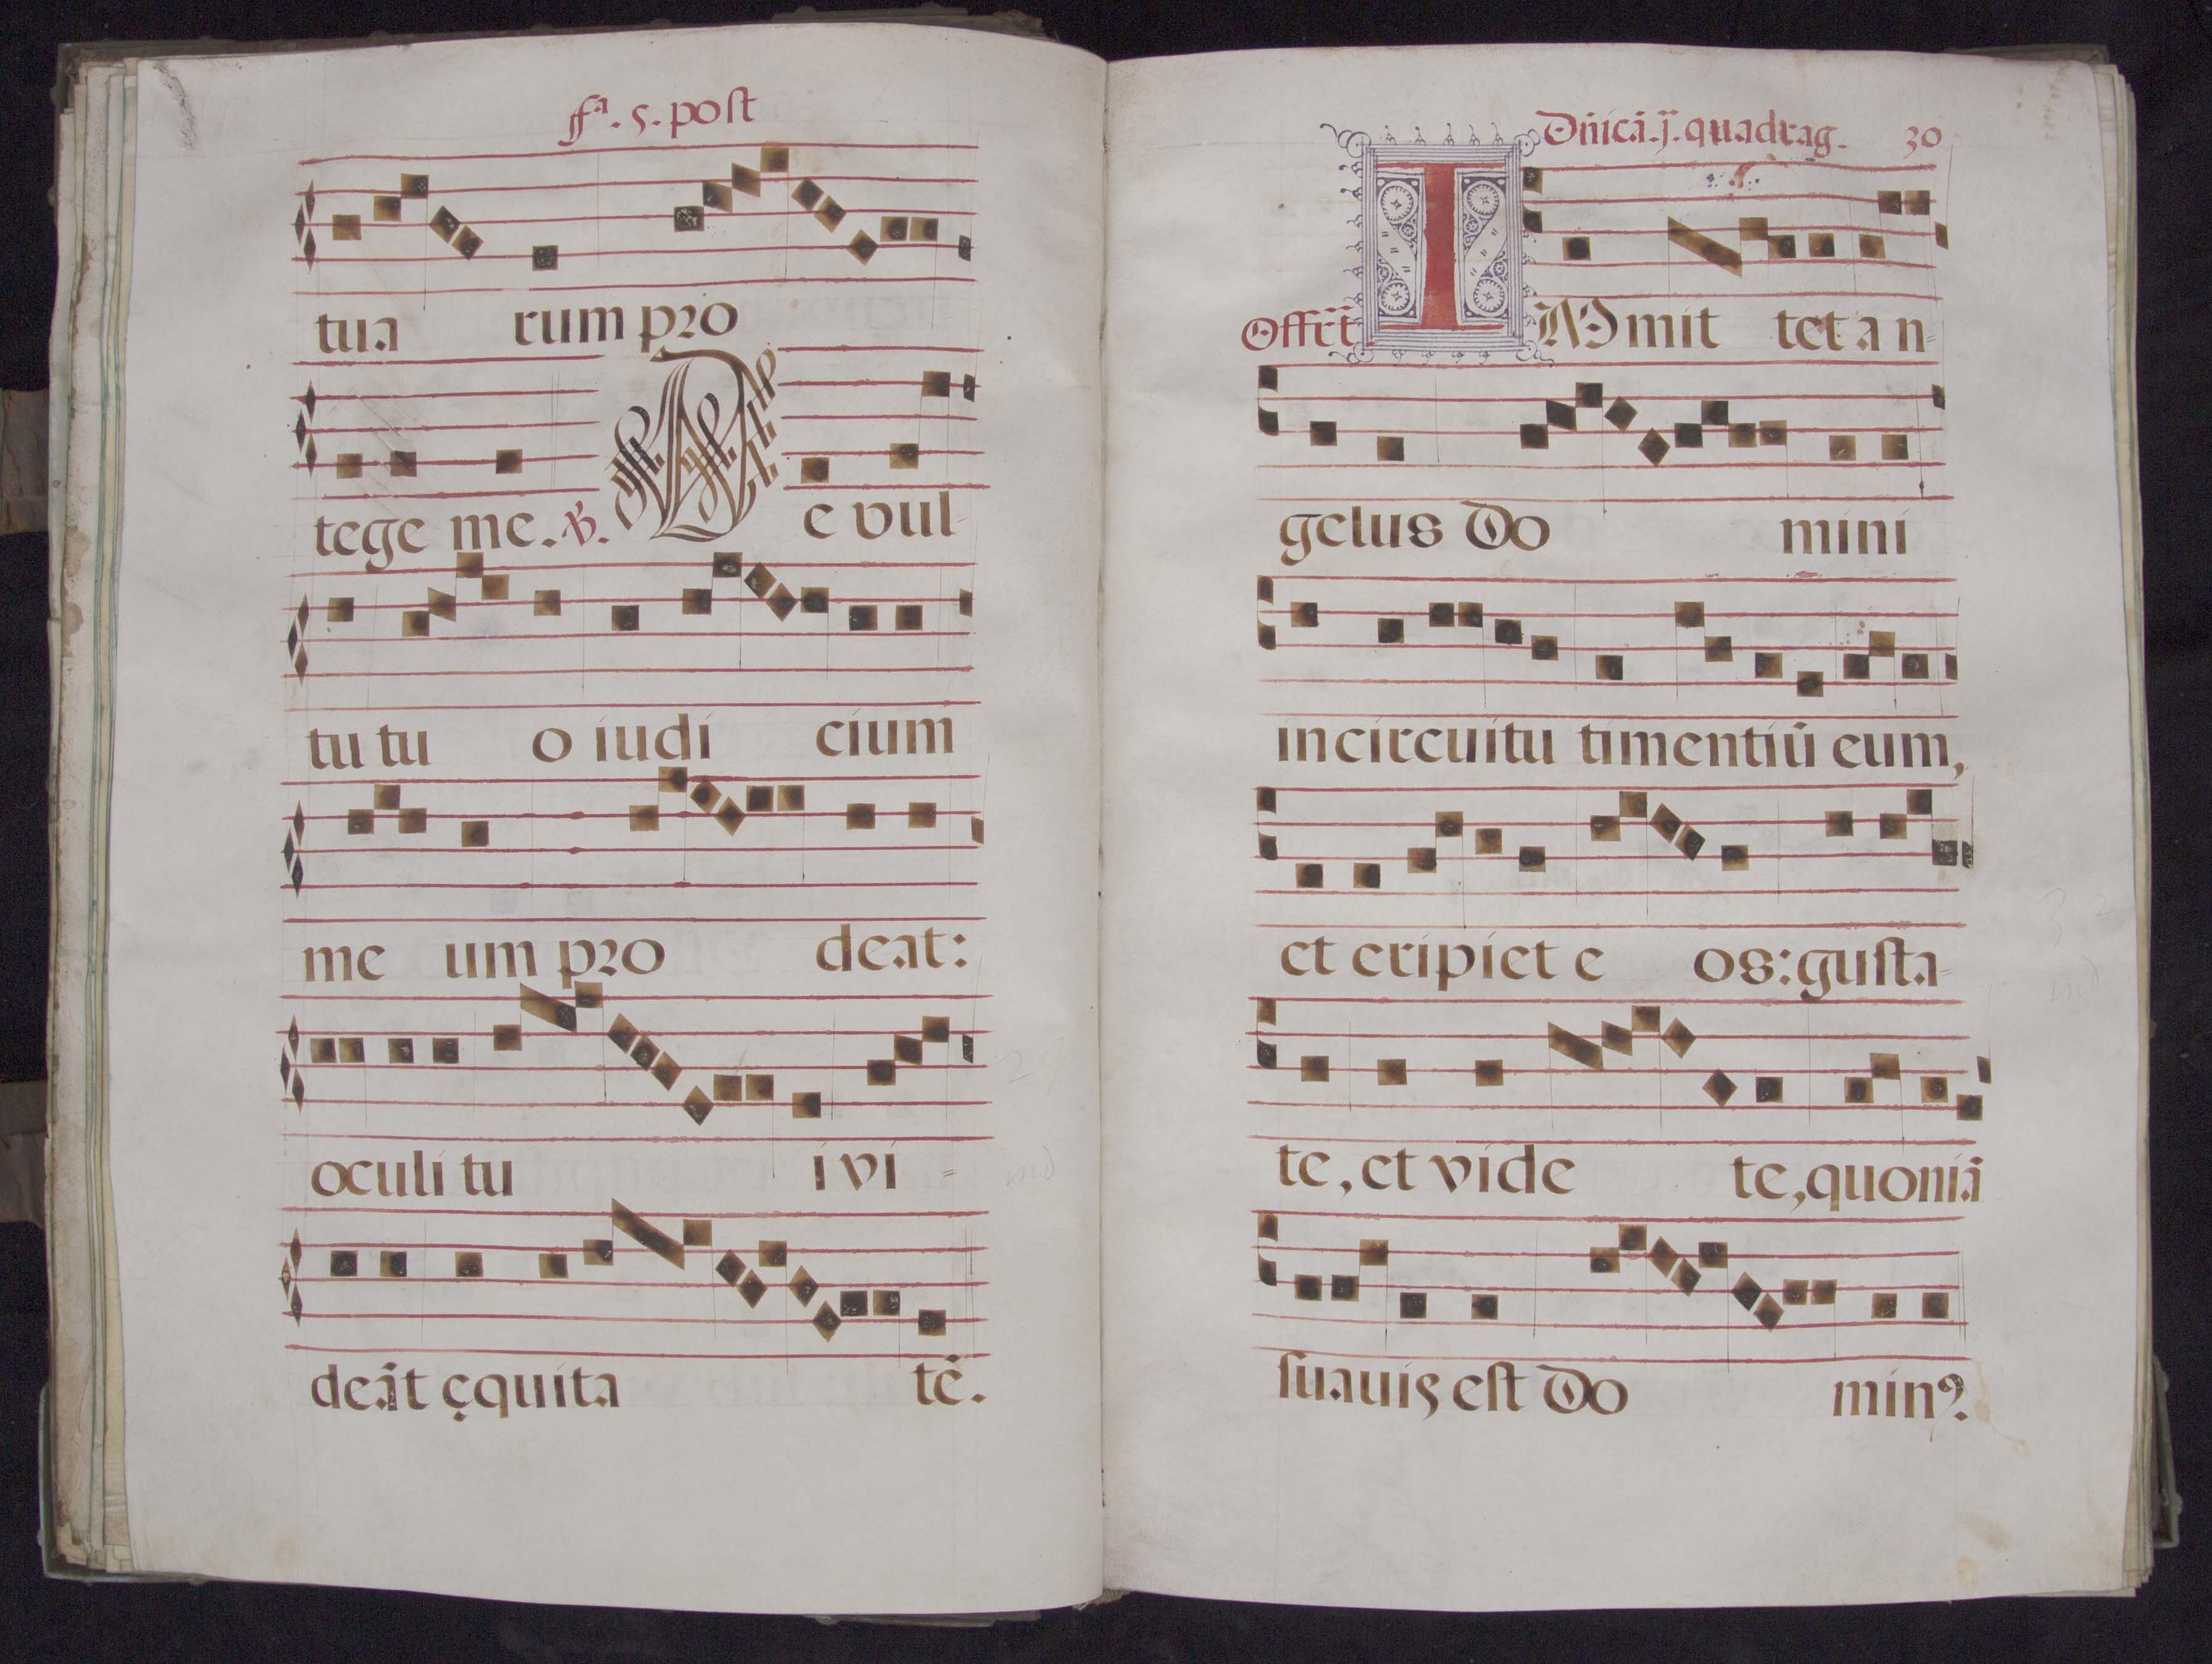 ffª. 5. post
tua rum pro
tege me. V̸. De vul-
tu tu o iudi cium
me um pro deat:
oculi tu i vi =
deãt ęquita tẽ.
Dñicã. j. quadrag. 30
Offr̃t IMmit tet a n=
gelus Do mini
in circuitu timentiũ eum,
et eripiet e os: gusta-
te, et vide te, quoniã
suauis est Do minꝰ.